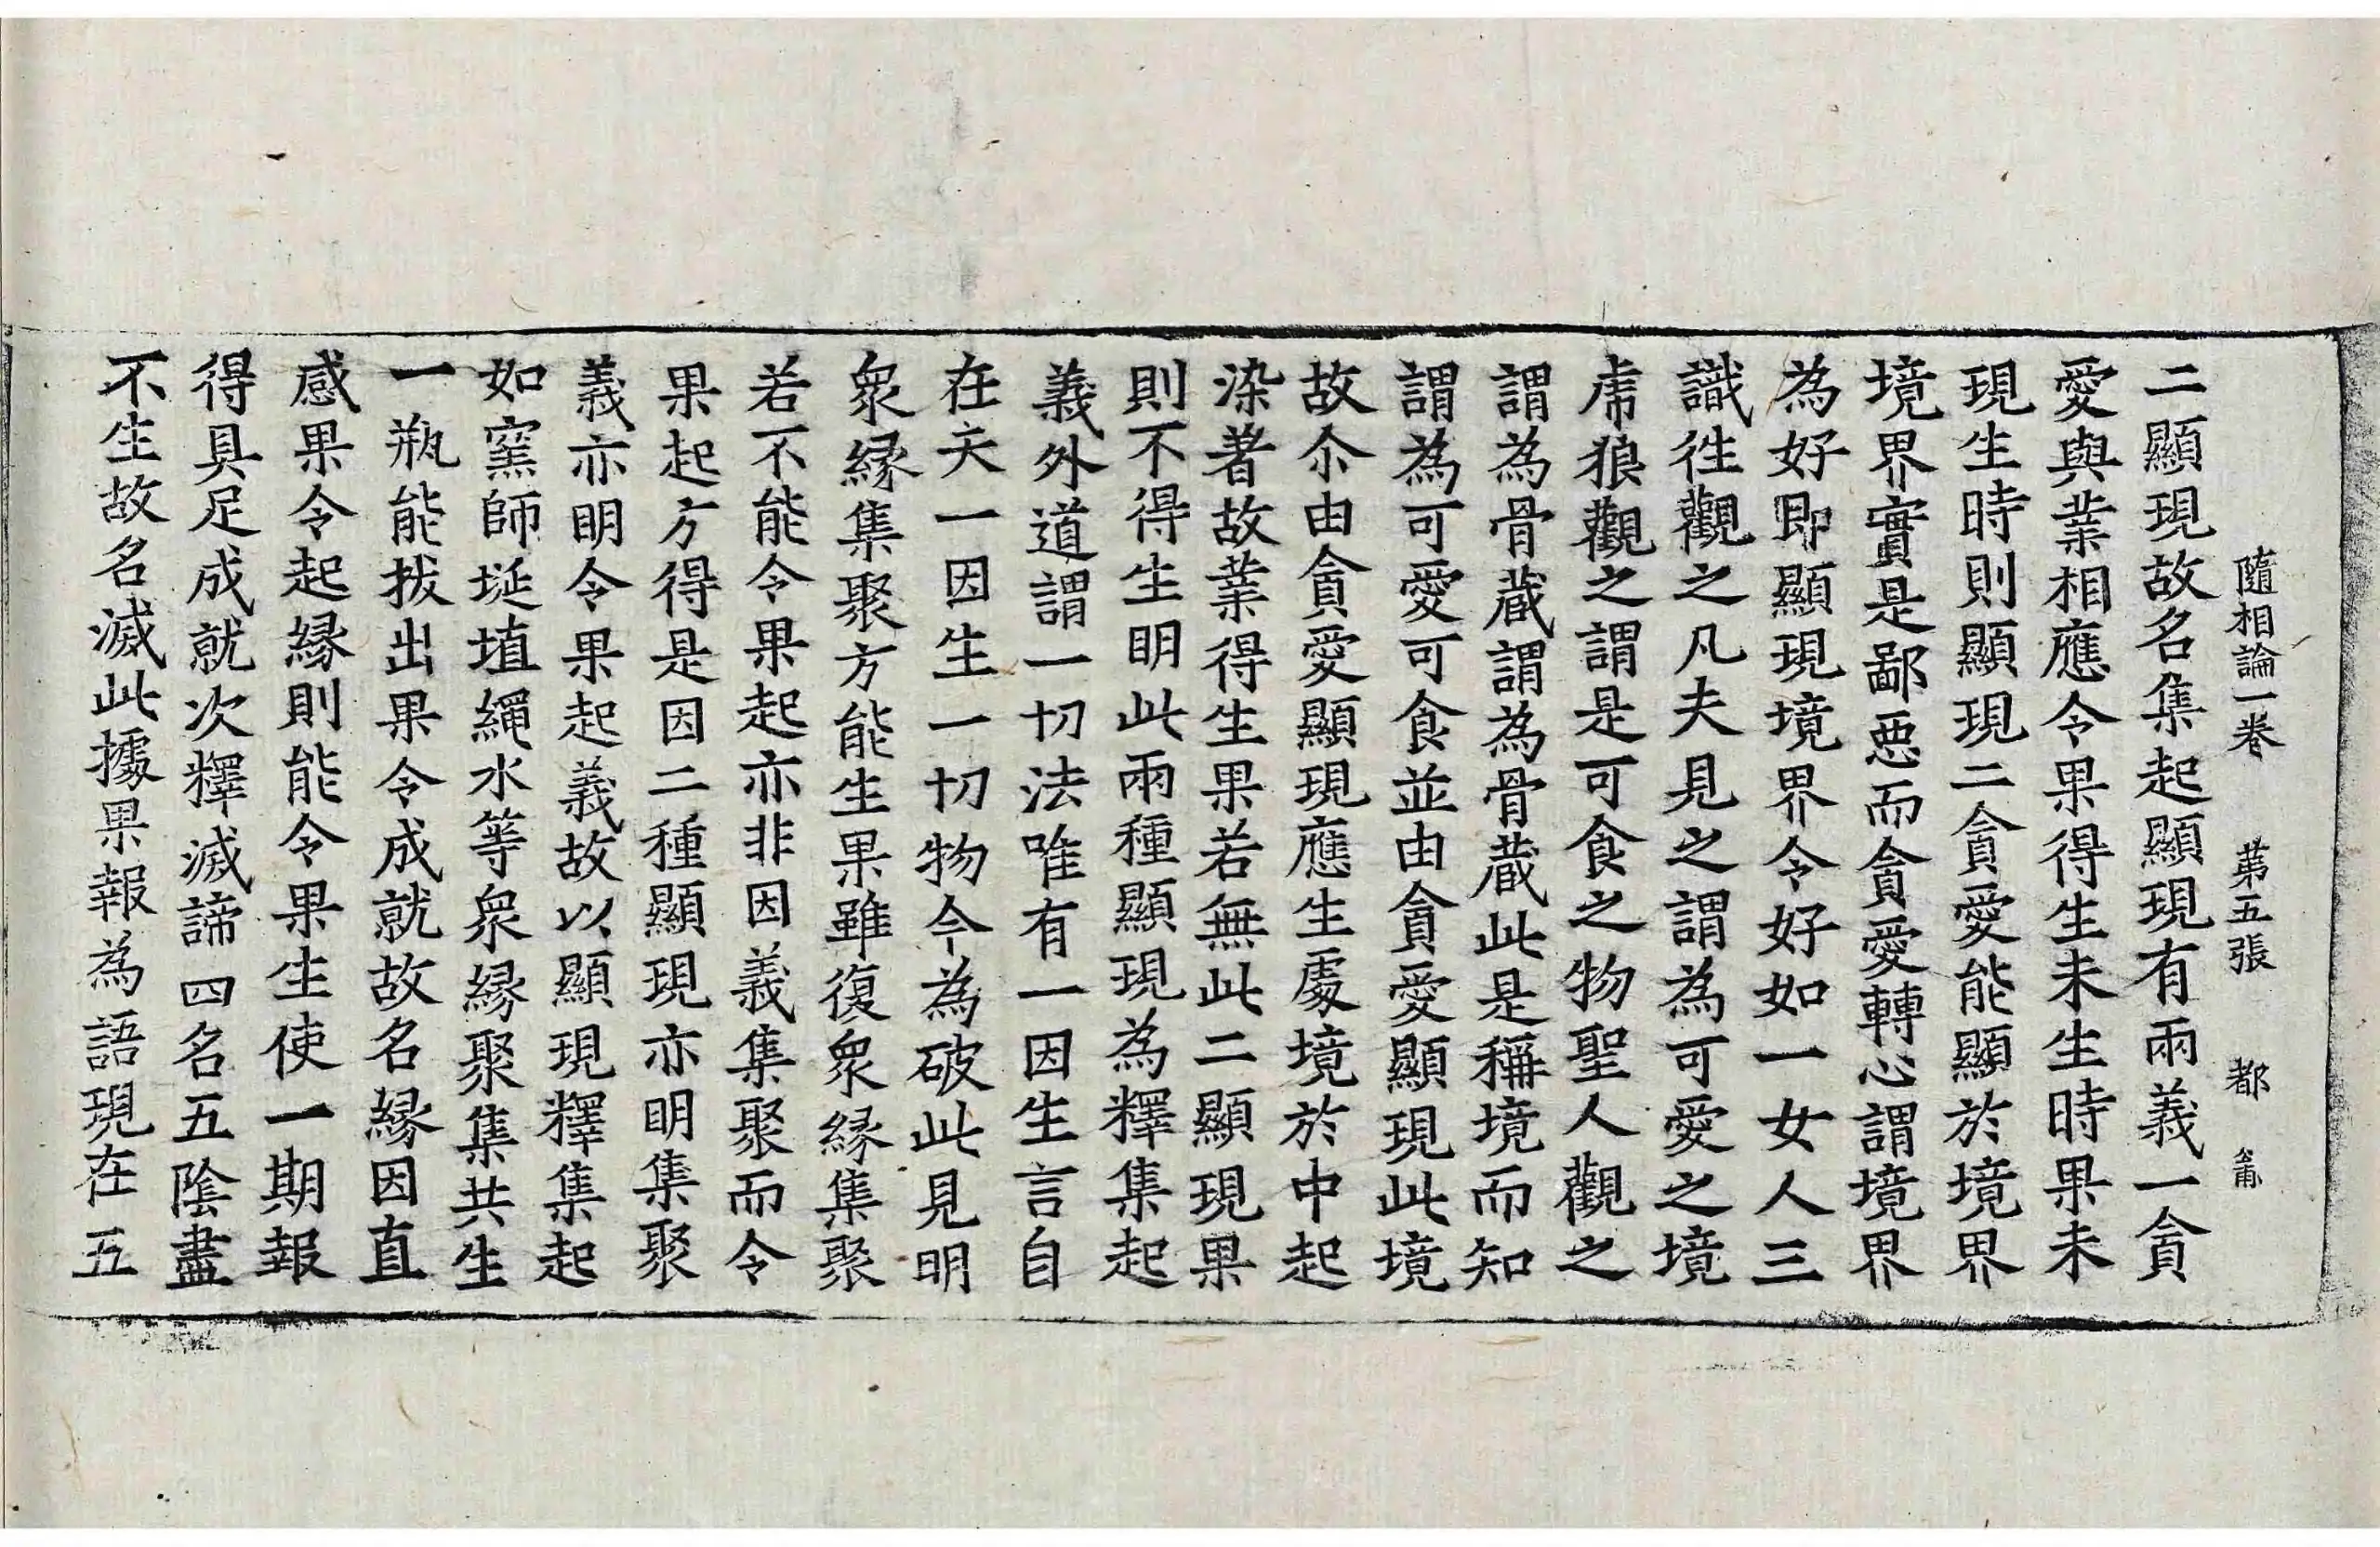 隨相論一卷 第五張 都
二顯現故名集起顯現有兩義一貪
愛與業相應令果得生未生時果未
現生時則顯現二貪愛能顯於境界
境界實是鄙惡而貪愛轉心謂境界
為好即顯現境界令好如一女人三
識徃觀之凡夫見之謂為可愛之境
虎狼觀之謂是可食之物聖人觀之
謂為骨蔵謂為骨蔵此是稱境而知
謂為可愛可食並由貪愛顯現此境
故尒由貪愛顯現應生處境於中起
染著故業得生果若無此二顯現果
則不得生明此兩種顯現為釋集起
義外道謂一切法唯有一因生言自
在天一因生一切物今為破此見明
衆縁集聚方能生果雖復衆縁集聚
若不能令果起亦非因義集聚而令
果起方得是因二種顯現亦明集聚
義亦明令果起義故以顯現釋集起
如窯師埏埴繩水等衆縁聚集共生
一瓶能拔出果令成就故名縁因直
感果令起縁則能令果生使一期報
得具足成就次釋滅諦四名五陰盡
不生故名滅此據果報為語現在五